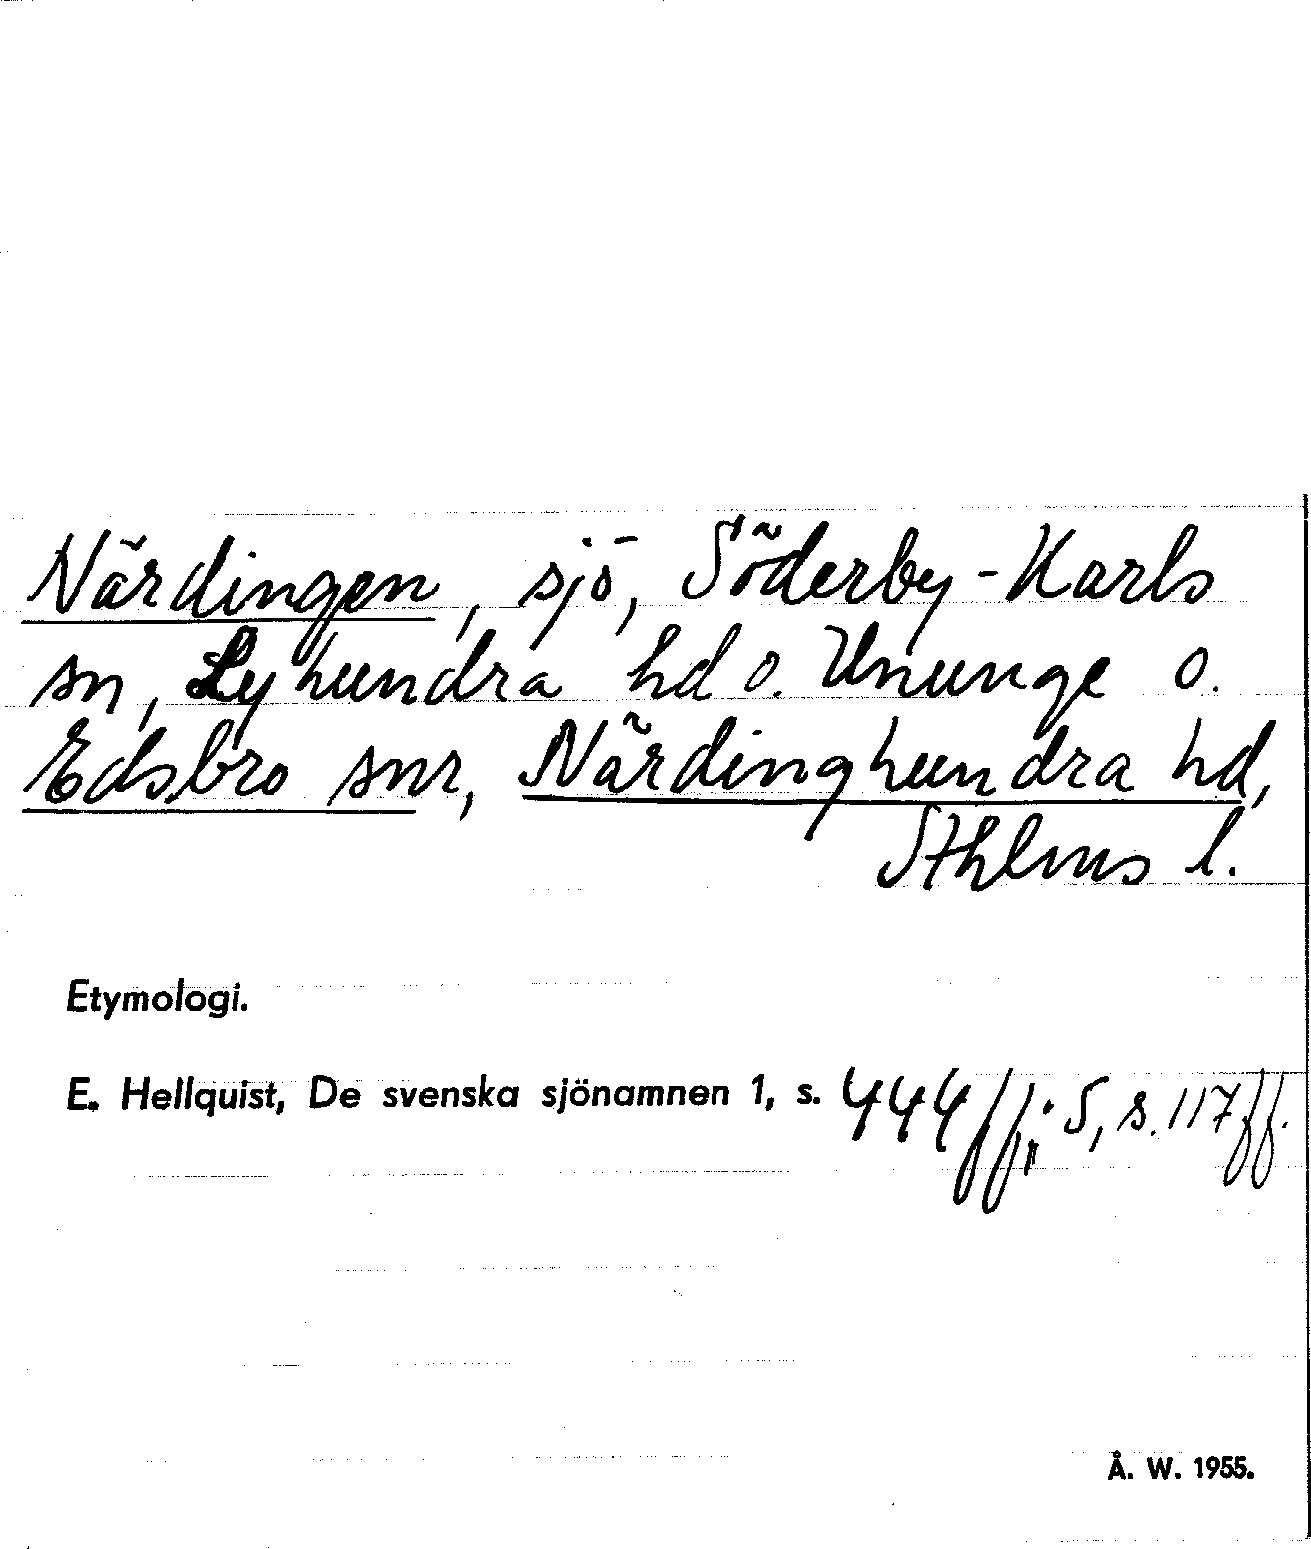 Närdingen, sjö, Söderby-Karls
sn, Lyhundra hd o. Ununge o.
Edsbro snr, Närdinghundra hd,
Sthlms l.
Etymologi.
E. Hellquist, De svenska sjönamnen 1, s. 444 ff.; 5, s. 117 ff.
Å. W. 1955.